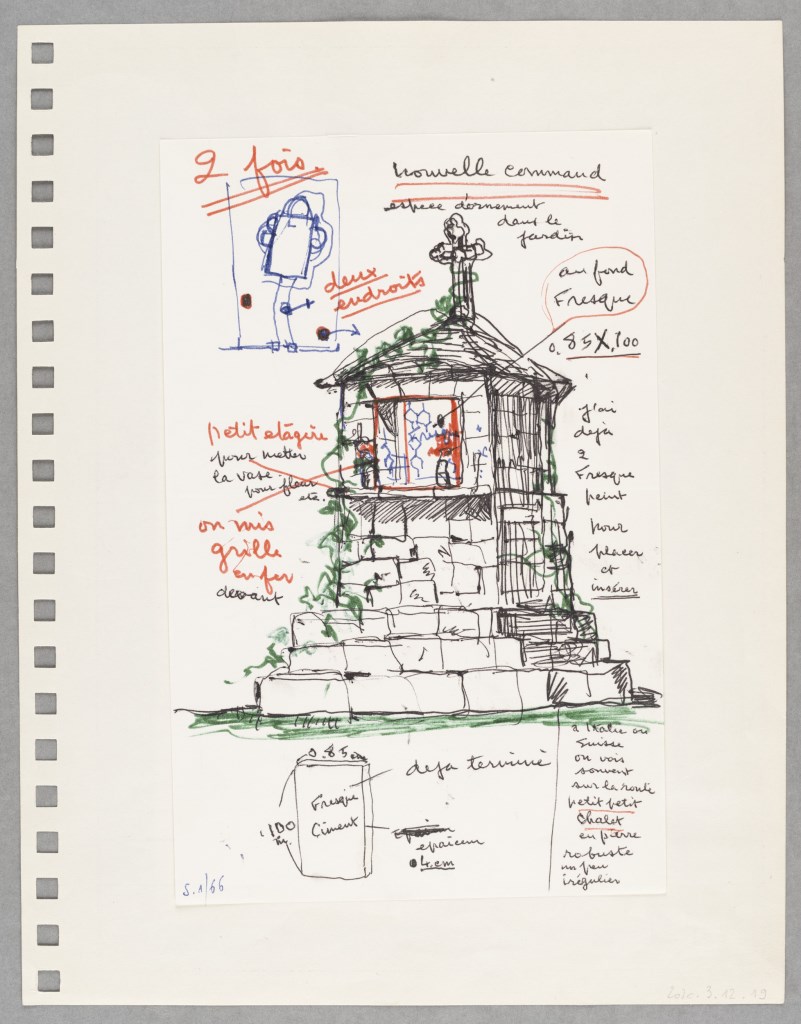 2 fois.
nouvelle command
espece d'ornement
dans le
jardin
au fond
Fresque
0.85X,100
deux
endroits
petit etâgère
pour metter
la vase
pour fleur
etc.
on mis
grille
en fer
devant
j'ai
deja
2
Fresque
peint
pour
placer
et
insérer
0.85
Fresque
Ciment
,100
deja terminé
epaiceur
0.4cm
à Italie ou
Suisse
on vois
souvent
sur la route
petit petit
Chalet
en pierre
robuste
un peu
irégulier
S.1/66
2020.3.12.19